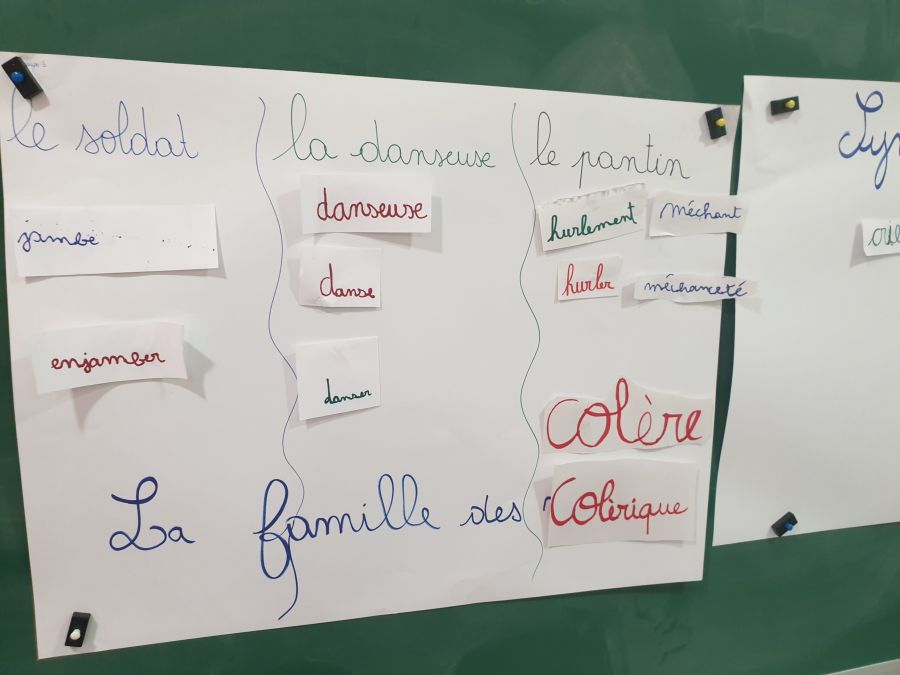 le soldat
la danseuse
le pantin
jambe
enjamber
danseuse
danse
danser
hurlement
méchant
hurler
méchanceté
colère
Colérique
La famille des